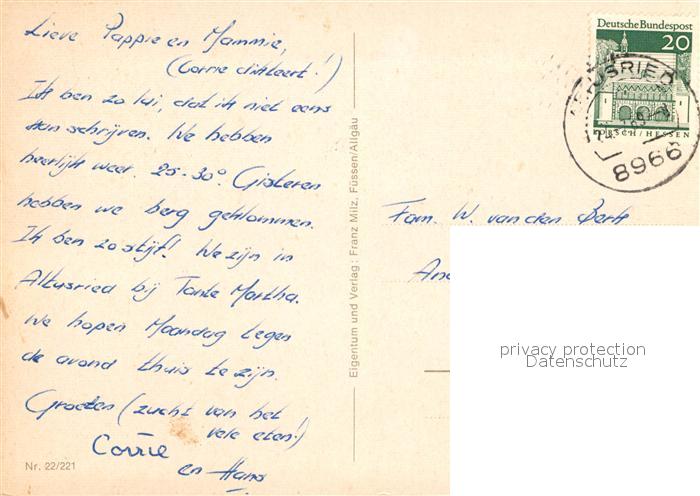 Lieve Pappie en Mammie,
(Corrie dikteert!)
Ik ben zo lui, dat ik niet eens
kan schrijven. We hebben
heerlijk weer. 25-30°. Gisteren
hebben we berg geklommen.
Ik ben zo stijf! We zijn in
Altusried bij Tante Martha.
We hopen Maandag tegen
de avond thuis te zijn.
Groeten (zucht van het
vele eten!)
Corrie
en Hans
Nr. 22/221
Eigentum und Verlag: Franz Milz, Füssen/Allgäu
Deutsche Bundespost
20
LORSCH/HESSEN
ALTUSRIED
8966
Fam. W. van den Berk
privacy protection
Datenschutz